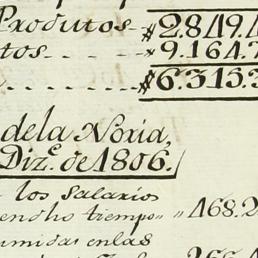 Produtos $2849.4
tos $9.164.7
$6.315.3
dela Noria,
Diz.e de 1806.
los salarios
tiempo „ „ 168.2
enlas